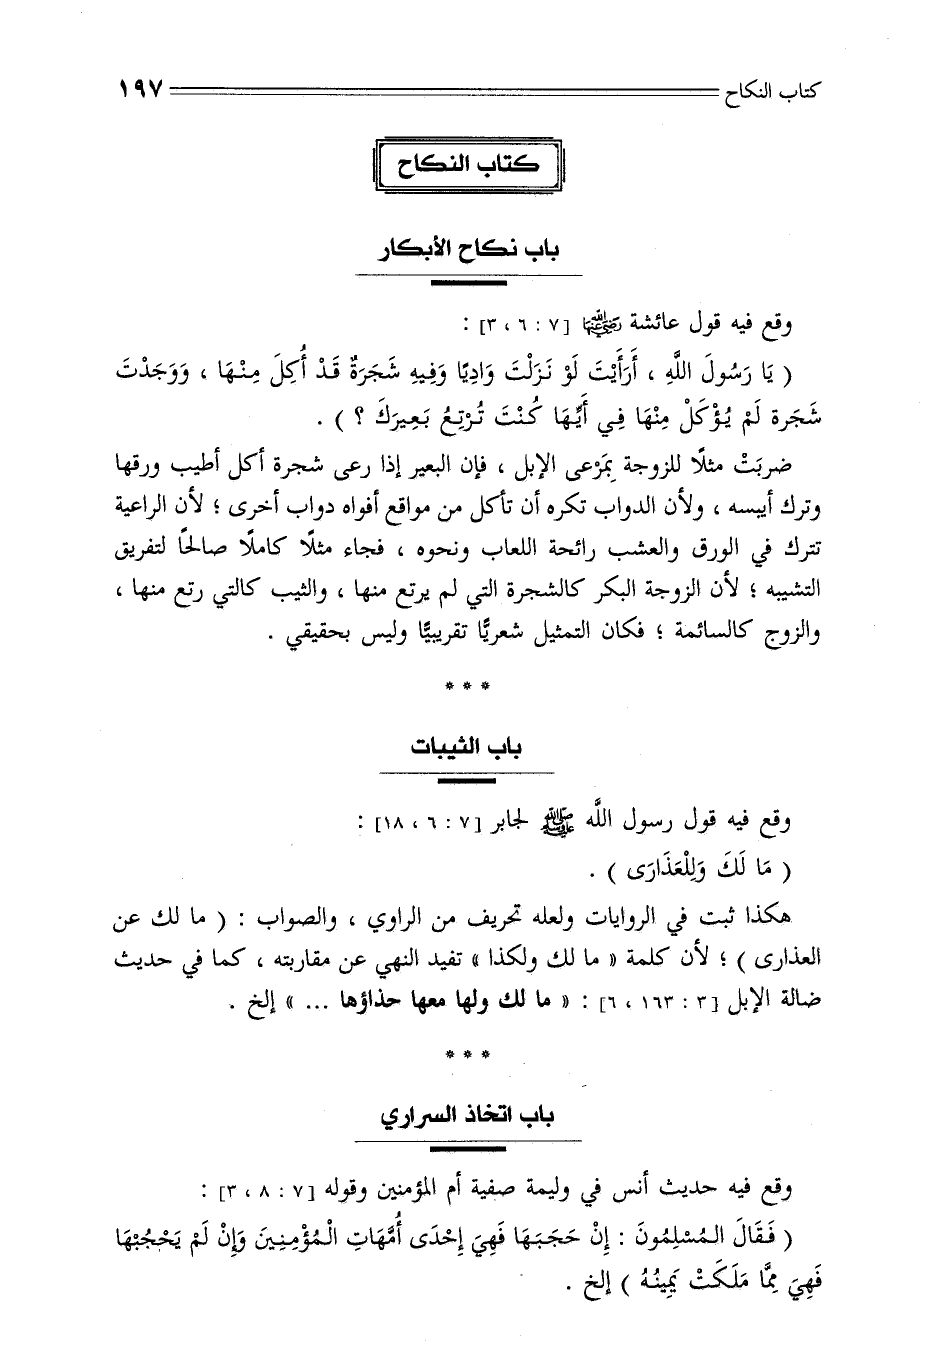 كتاب النكاح ١٩٧
كتاب النكاح
باب نكاح الأبكار
وقع فيه قول عائشة رضي الله عنها [٧ : ٦ ، ٣] :
( يَا رَسُولَ اللَّهِ ، أَرَأَيْتَ لَوْ نَزَلْتَ وَادِيًا وَفِيهِ شَجَرَةٌ قَدْ أُكِلَ مِنْهَا ، وَوَجَدْتَ
شَجَرة لَمْ يُؤْكَلْ مِنْهَا فِي أَيِّهَا كُنْتَ تُرْتِعُ بَعِيرَكَ ؟ ) .
ضربَتْ مثلًا للزوجة بِمَرْعى الإبل ، فإن البعير إذا رعى شجرة أكل أطيب ورقها
وترك أيبسه ، ولأن الدواب تكره أن تأكل من مواقع أفواه دواب أخرى ؛ لأن الراعية
تترك في الورق والعشب رائحة اللعاب ونحوه ، فجاء مثلًا كاملًا صالحًا لتفريق
التشيبه ؛ لأن الزوجة البكر كالشجرة التي لم يرتع منها ، والثيب كالتي رتع منها ،
والزوج كالسائمة ؛ فكان التمثيل شعريًّا تقريبيًّا وليس بحقيقي .
* * *
باب الثيبات
وقع فيه قول رسول اللَّه ﷺ لجابر [٧ : ٦ ، ١٨] :
( مَا لَكَ وَلِلْعَذَارَى ) .
هكذا ثبت في الروايات ولعله تحريف من الراوي ، والصواب : ( ما لك عن
العذارى ) ؛ لأن كلمة « ما لك ولكذا » تفيد النهي عن مقاربته ، كما في حديث
ضالة الإبل [٣ : ١٦٣ ، ٦] : « ما لك ولها معها حذاؤها ... » إلخ .
* * *
باب اتخاذ السراري
وقع فيه حديث أنس في وليمة صفية أم المؤمنين وقوله [٧ : ٨ ، ٣] :
( فَقَالَ الـمُسْلِمُونَ : إِنْ حَجَبَـهَا فَهِيَ إِحْدَى أُمَّهَاتِ الْـمُؤْمِنِينَ وَإِنْ لَمْ يَحْجُبْهَا
فَهِيَ مِمَّا مَلَكَتْ يَمِينُهُ ) إلخ .